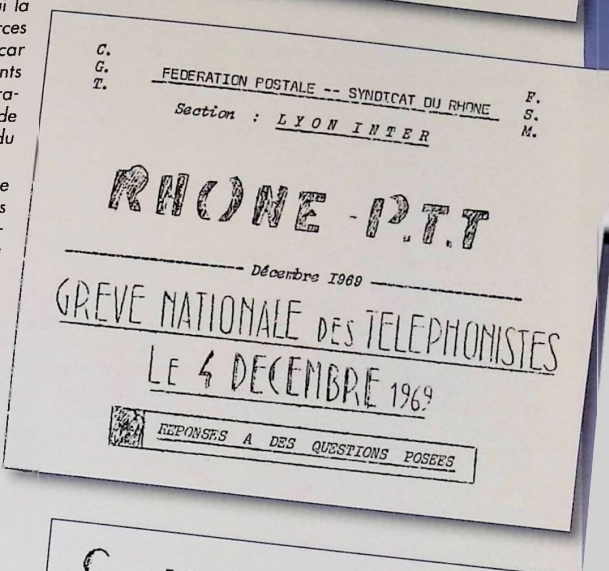 ui la
rces
car
nts
ra-
de
du
e
s
-
C.
G.
T.
FEDERATION POSTALE -- SYNDICAT DU RHONE
F.
S.
M.
Section : LYON INTER
RHONE - P.T.T
Décembre I969
GREVE NATIONALE DES TELEPHONISTES
LE 4 DECEMBRE 1969
REPONSES A DES QUESTIONS POSEES